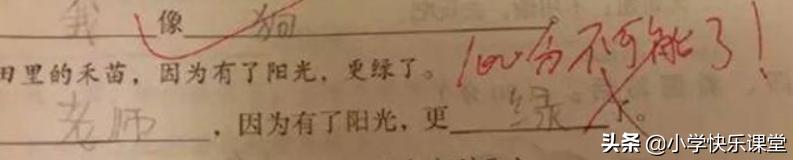 我 像 狗
田里的禾苗，因为有了阳光，更绿了。 100分不可能了！
老师，因为有了阳光，更绿了。
头条 @小学快乐课堂